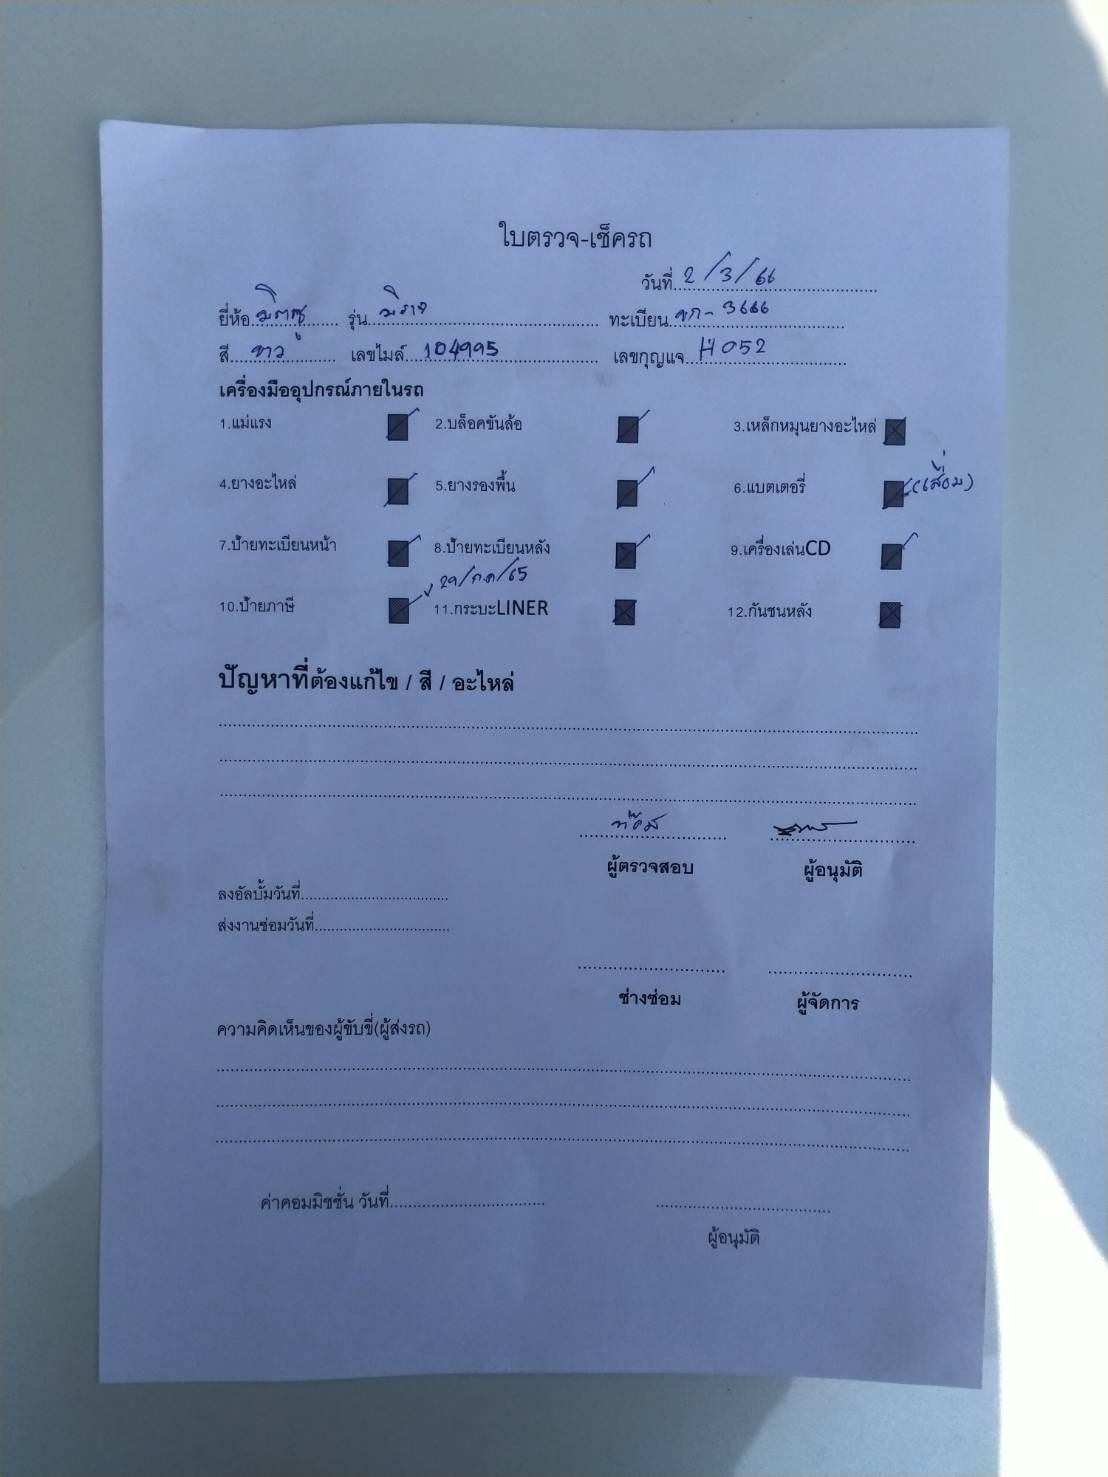 ใบตรวจ-เช็ครถ
วันที่ 2/3/66
ยี่ห้อ มิตซู รุ่น มิราจ ทะเบียน ขก-3666
สี ขาว เลขไมล์ 104995 เลขกุญแจ H052
เครื่องมืออุปกรณ์ภายในรถ
1.แม่แรง 2.บล็อคขันล้อ 3.เหล็กหมุนยางอะไหล่
4.ยางอะไหล่ 5.ยางรองพื้น 6.แบตเตอรี่ (เสื่อม)
7.ป้ายทะเบียนหน้า 8.ป้ายทะเบียนหลัง 9.เครื่องเล่นCD
29/กค/65
10.ป้ายภาษี 11.กระบะLINER 12.กันชนหลัง
ปัญหาที่ต้องแก้ไข / สี / อะไหล่
ผู้ตรวจสอบ ผู้อนุมัติ
ลงอัลบั้มวันที่
ส่งงานซ่อมวันที่
ช่างซ่อม ผู้จัดการ
ความคิดเห็นของผู้ขับขี่(ผู้ส่งรถ)
ค่าคอมมิชชั่น วันที่
ผู้อนุมัติ